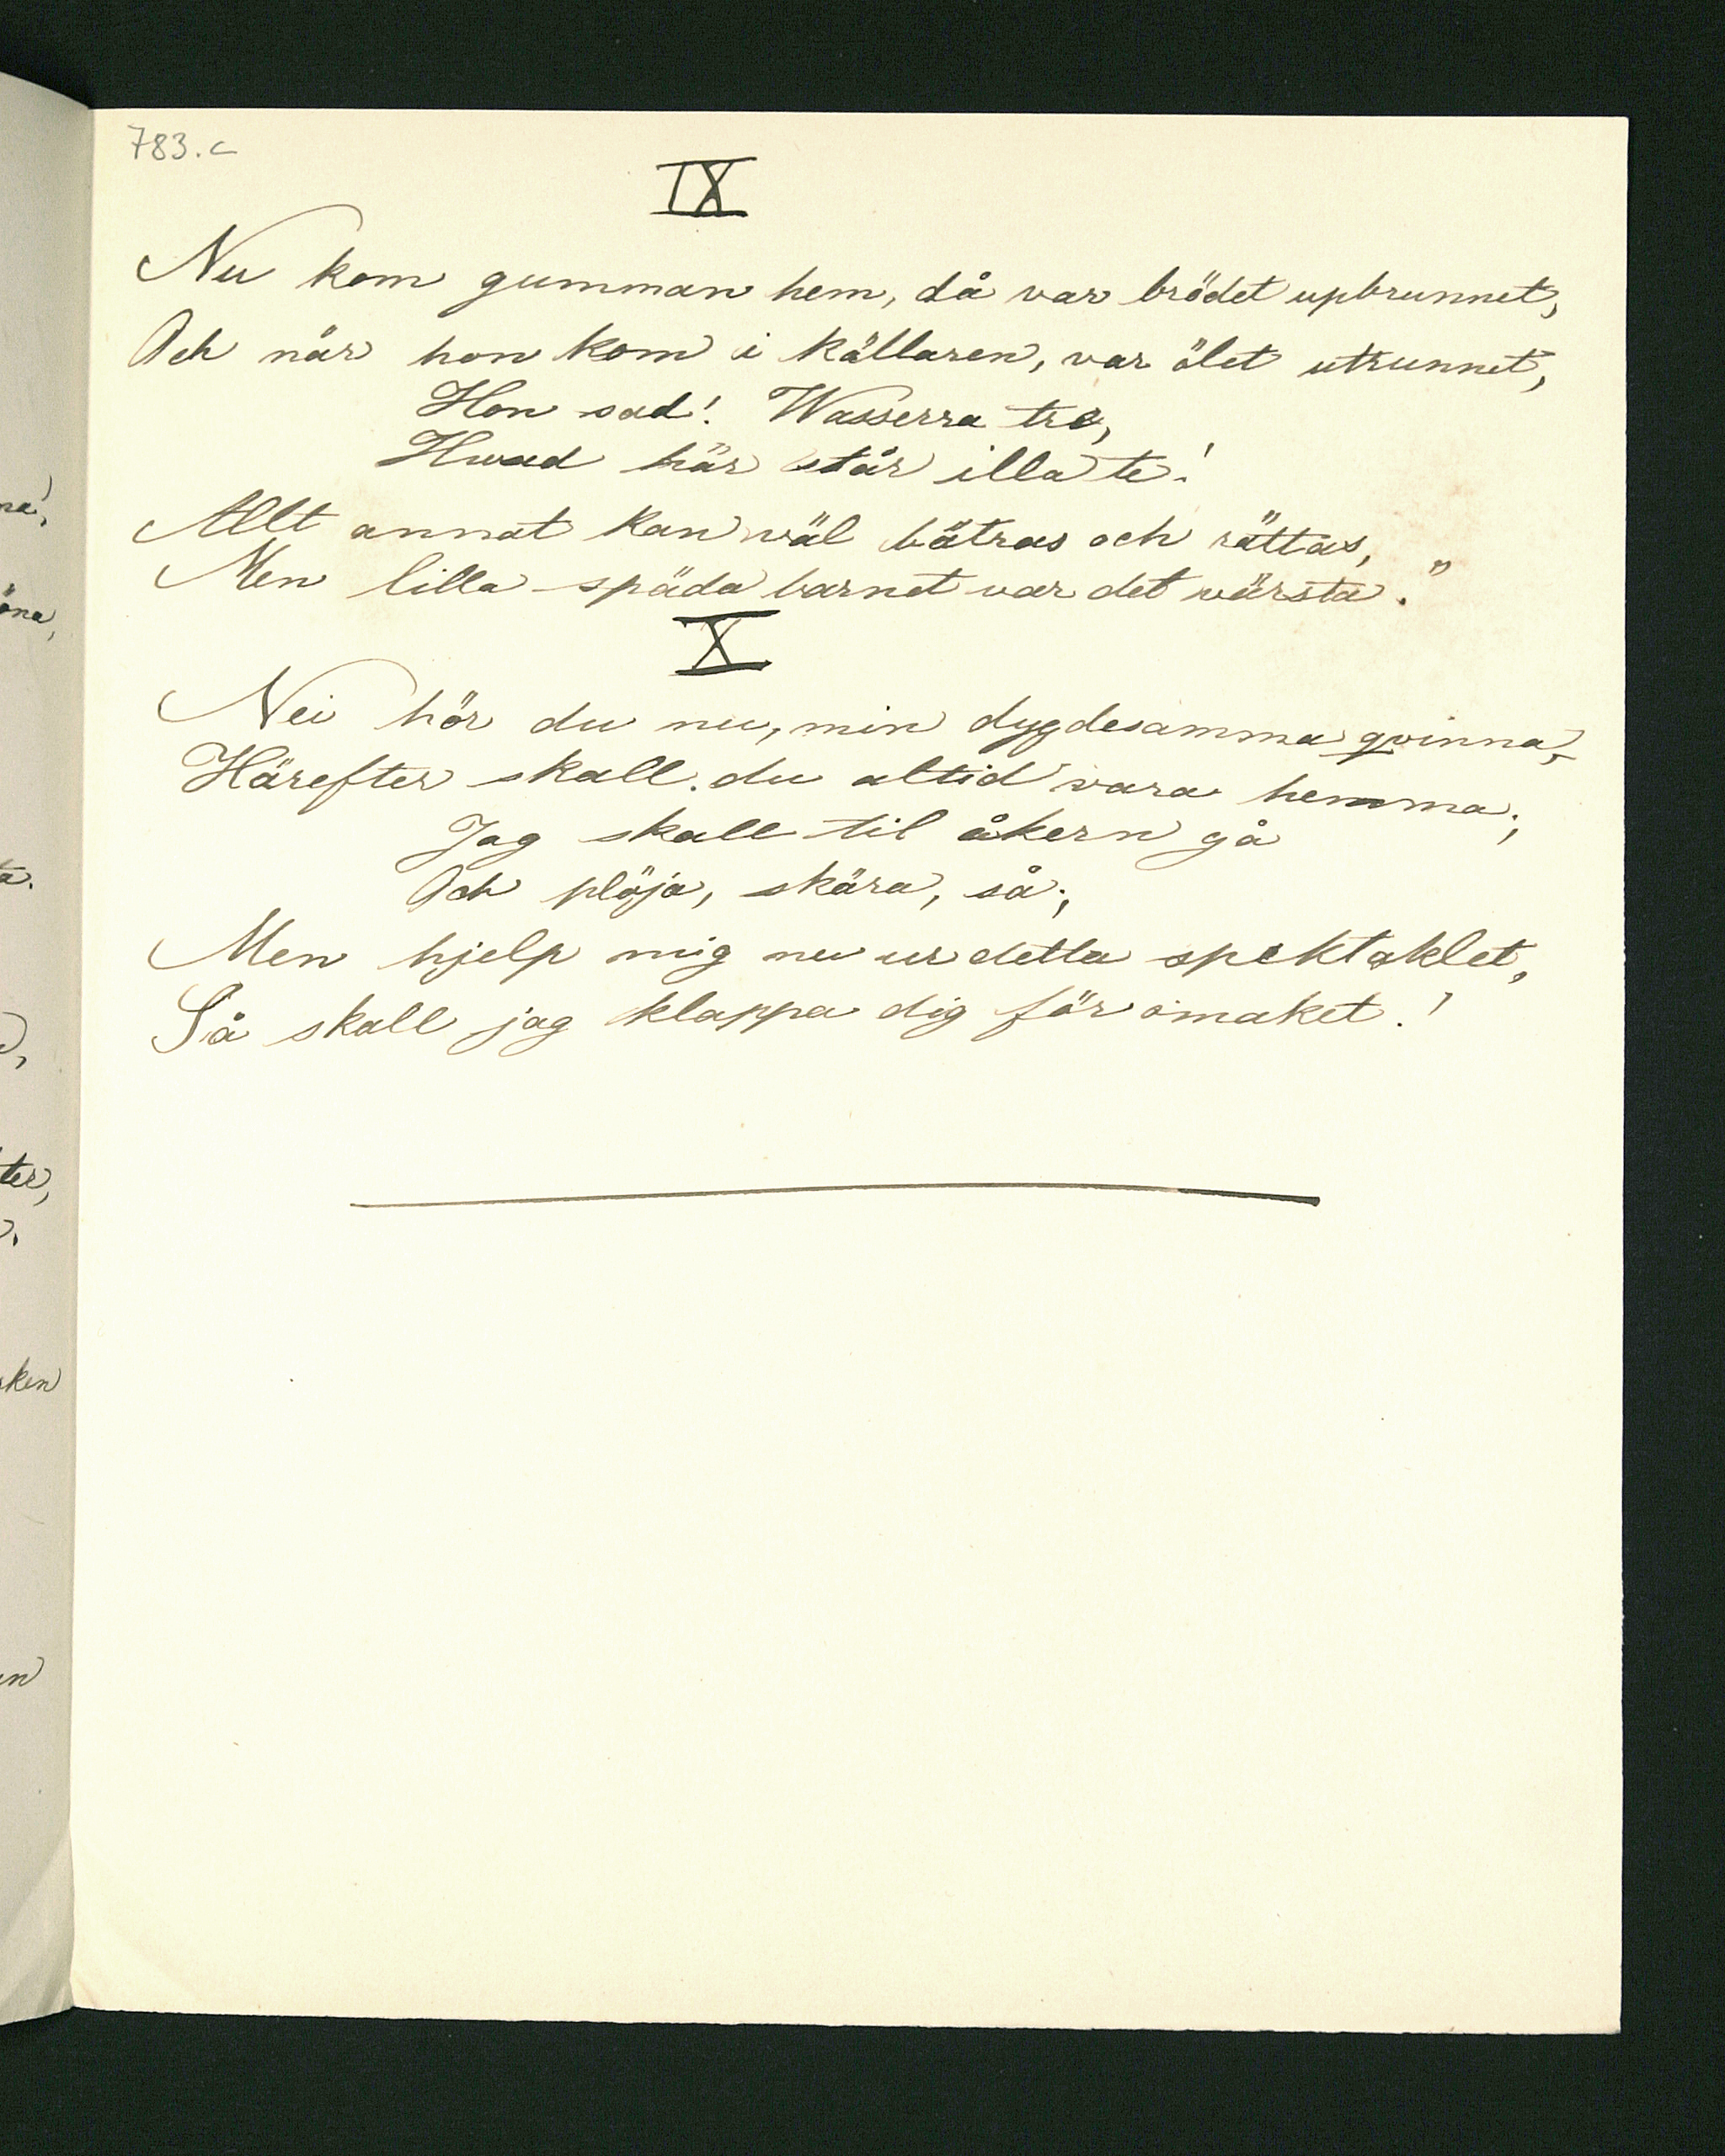 783.c
IX
Nu kom gumman hem, då var brödet upbrunnet,
Och när hon kom i källaren, var ölet utrunnet,
Hon sad! Wasserra tre,
Hwad här står illa te!
Allt annat kan wäl bätras och rättas,
Men lilla späda barnet var det wärsta."
X
Nei hör du nu, min dygdesamma qvinna,
Härefter skall du altid vara hemma;
Jag skall til åkern gå
Och plöja, skära, så;
Men hjelp mig nu ur detta spektaklet,
Så skall jag klappa dig för omaket.!
na!,
öna,
ta.
ter,
ken